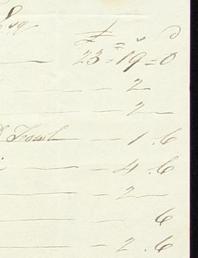 Esq
£ s D
23=19=0
— 2
— 2
Fowl — 1.6
— 4.6
— 2 —
— 6
— 2.6